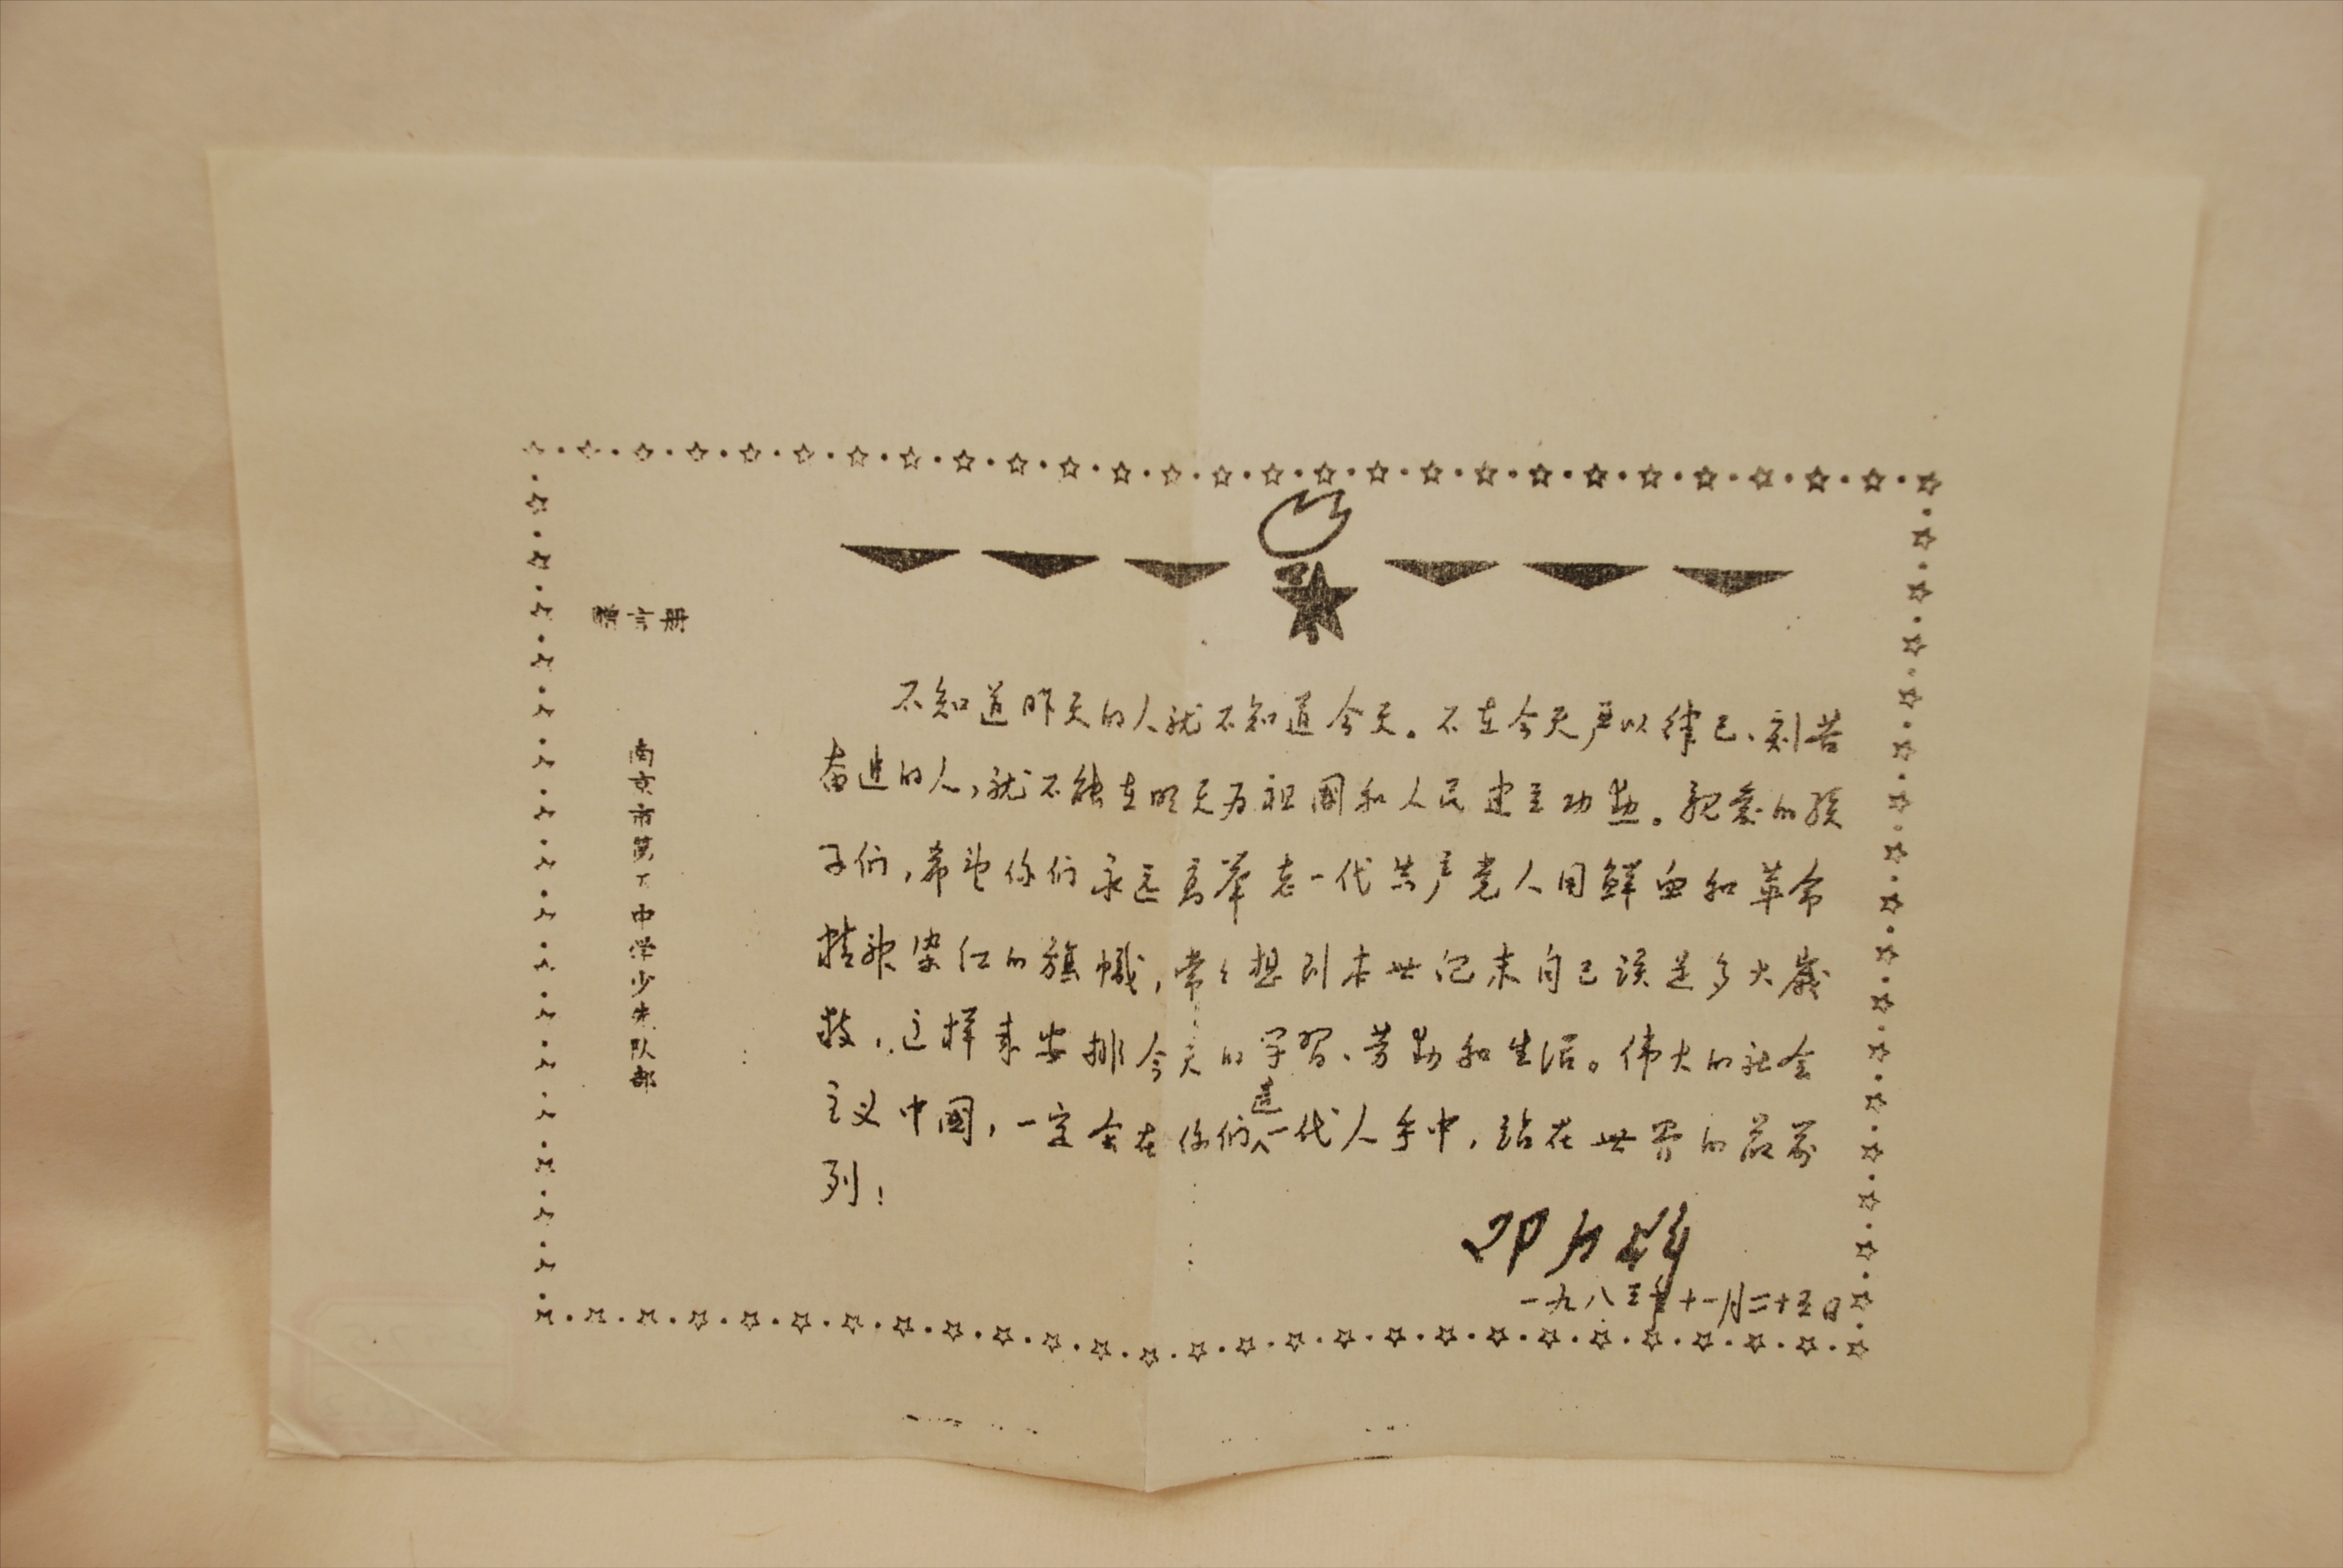 赠言册
南京市第 中学少先队部
不知道昨天的人就不知道今天。不在今天严以律己、刻苦
奋进的人，就不能在明天为祖国和人民建立功勋。亲爱的孩
子们，希望你们永远高举老一代共产党人用鲜血和革命
精神染红的旗帜，常々想到本世纪末自己该是多大歲
数，这样来安排今天的学習、劳动和生活。伟大的社会
主义中国，一定会在你们这一代人手中，站在世界的最前
列！
一九八三年十一月二十五日